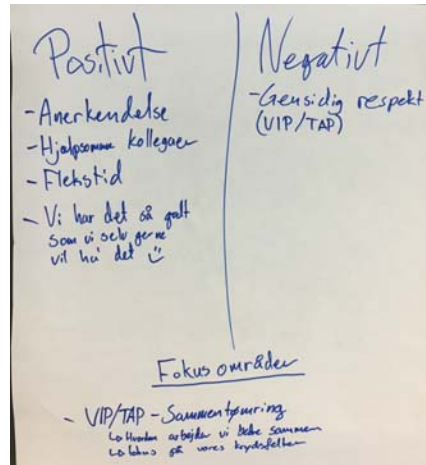 Positivt
- Anerkendelse
- Hjælpsomme kollegaer
- Flekstid
- Vi har det så godt
som vi selv gerne
vil ha' det
Negativt
- Gensidig respekt
(VIP/TAP)
Fokus områder
- VIP/TAP - Sammentømring
↳ Hvordan arbejder vi bedre sammen
↳ Fokus på vores krydsfelter